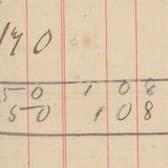 170
50 108
50 108